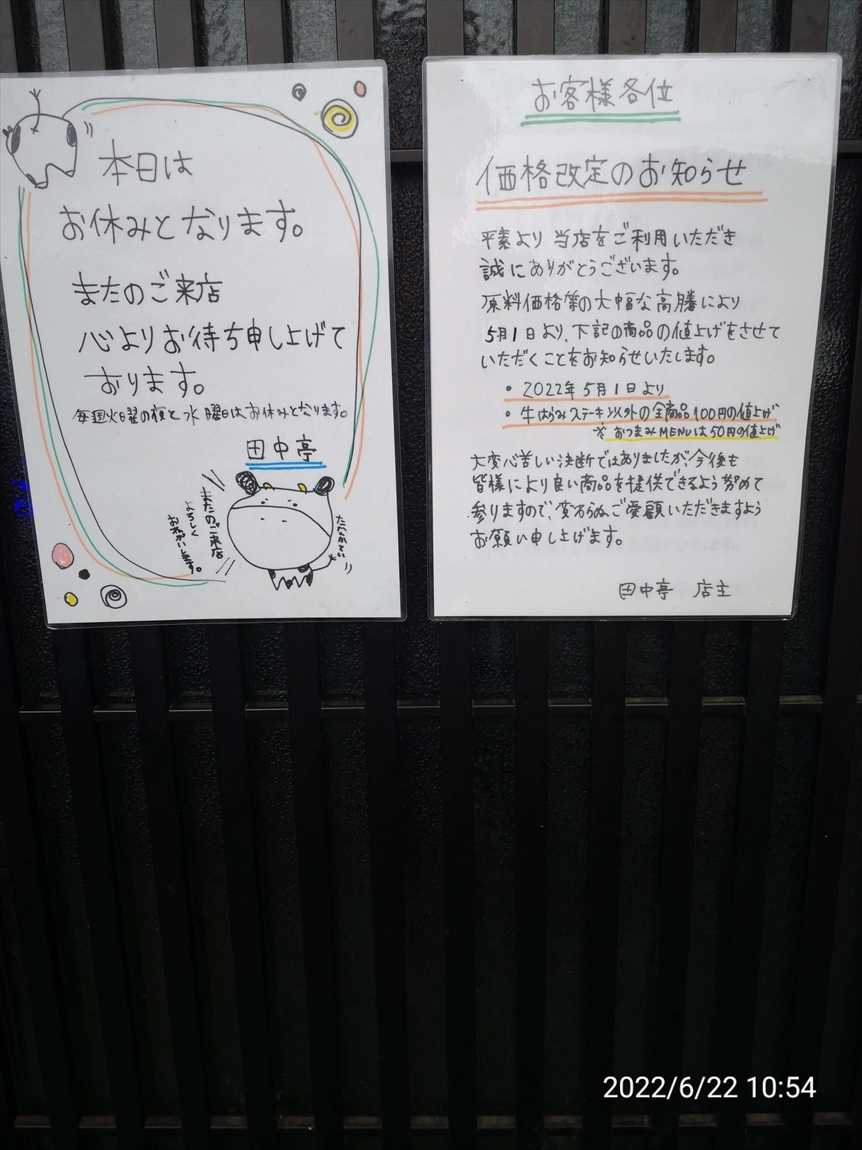 本日は
お休みとなります。
またのご来店
心よりお待ち申し上げて
おります。
毎週火曜の夜と水曜日はお休みとなります。
田中亭
またのご来店
よろしく
おねがいします。
お客様各位
価格改定のお知らせ
平素より当店をご利用いただき
誠にありがとうございます。
原料価格等の大幅な高騰により
5月1日より、下記の商品の値上げをさせて
いただくことをお知らせいたします。
・2022年5月1日より
・牛はらみステーキ以外の全商品100円の値上げ
※おつまみMENUは50円の値上げ
大変心苦しい決断ではありましたが今後も
皆様により良い商品を提供できるよう努めて
参りますので、変わらぬご愛顧いただきますよう
お願い申し上げます。
田中亭 店主
2022/6/22 10:54